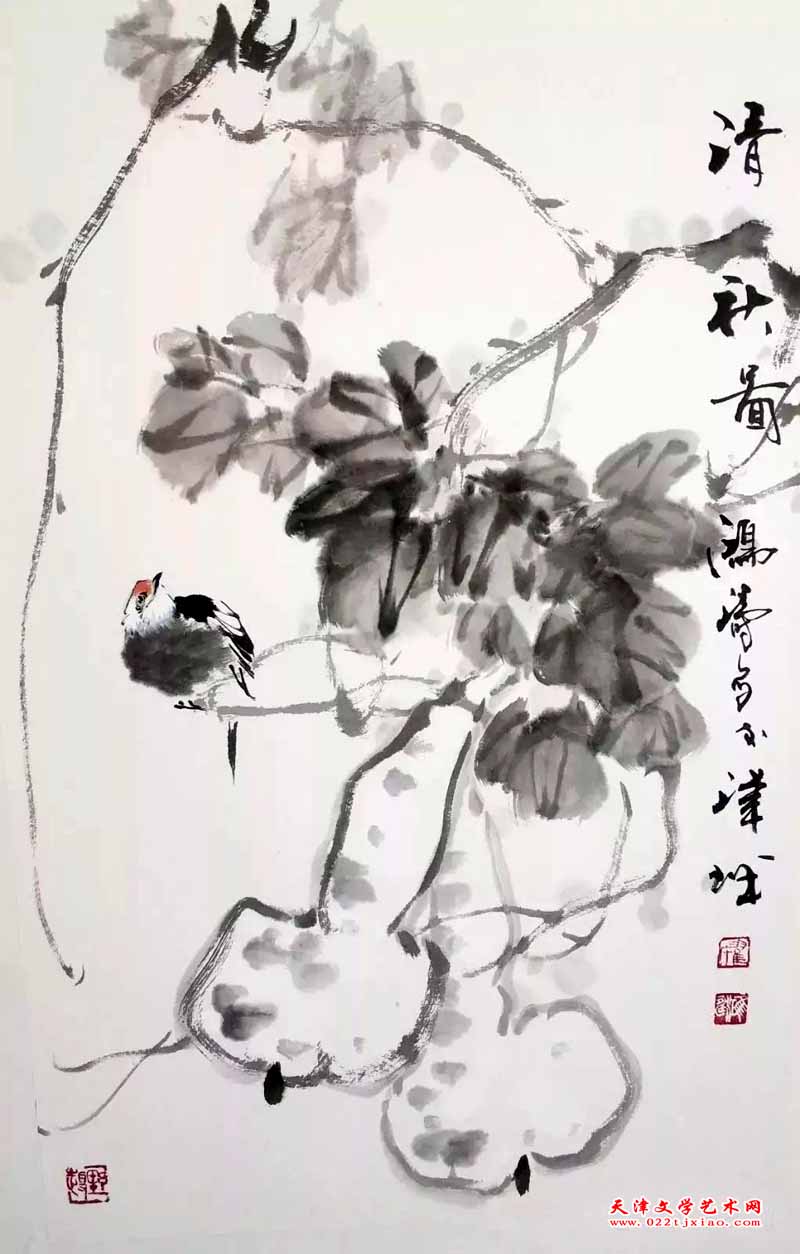 清秋啚 鴻濤写于津城
天津文学艺术网
www.022tjxiao.com